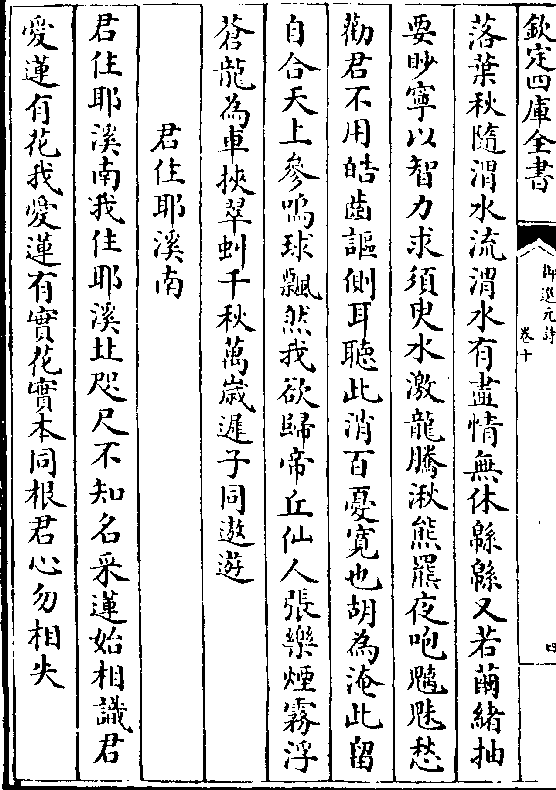 欽定四庫全書
御選元詩
卷十
四
落葉秋隨渭水流渭水有盡情無休緜緜又若繭緒抽
要眇寧以智力求須臾水激龍騰湫熊羆夜咆魑魅愁
勸君不用皓齒謳側耳聽此消百憂寛也胡為淹此留
自合天上參鳴球飄然我欲歸帝丘仙人張樂煙霧浮
蒼龍為車挾翠虯千秋萬歲遲子同遨遊
君住耶溪南
君住耶溪南我住耶溪北咫尺不知名采蓮始相識君
愛蓮有花我愛蓮有實花實本同根君心勿相失